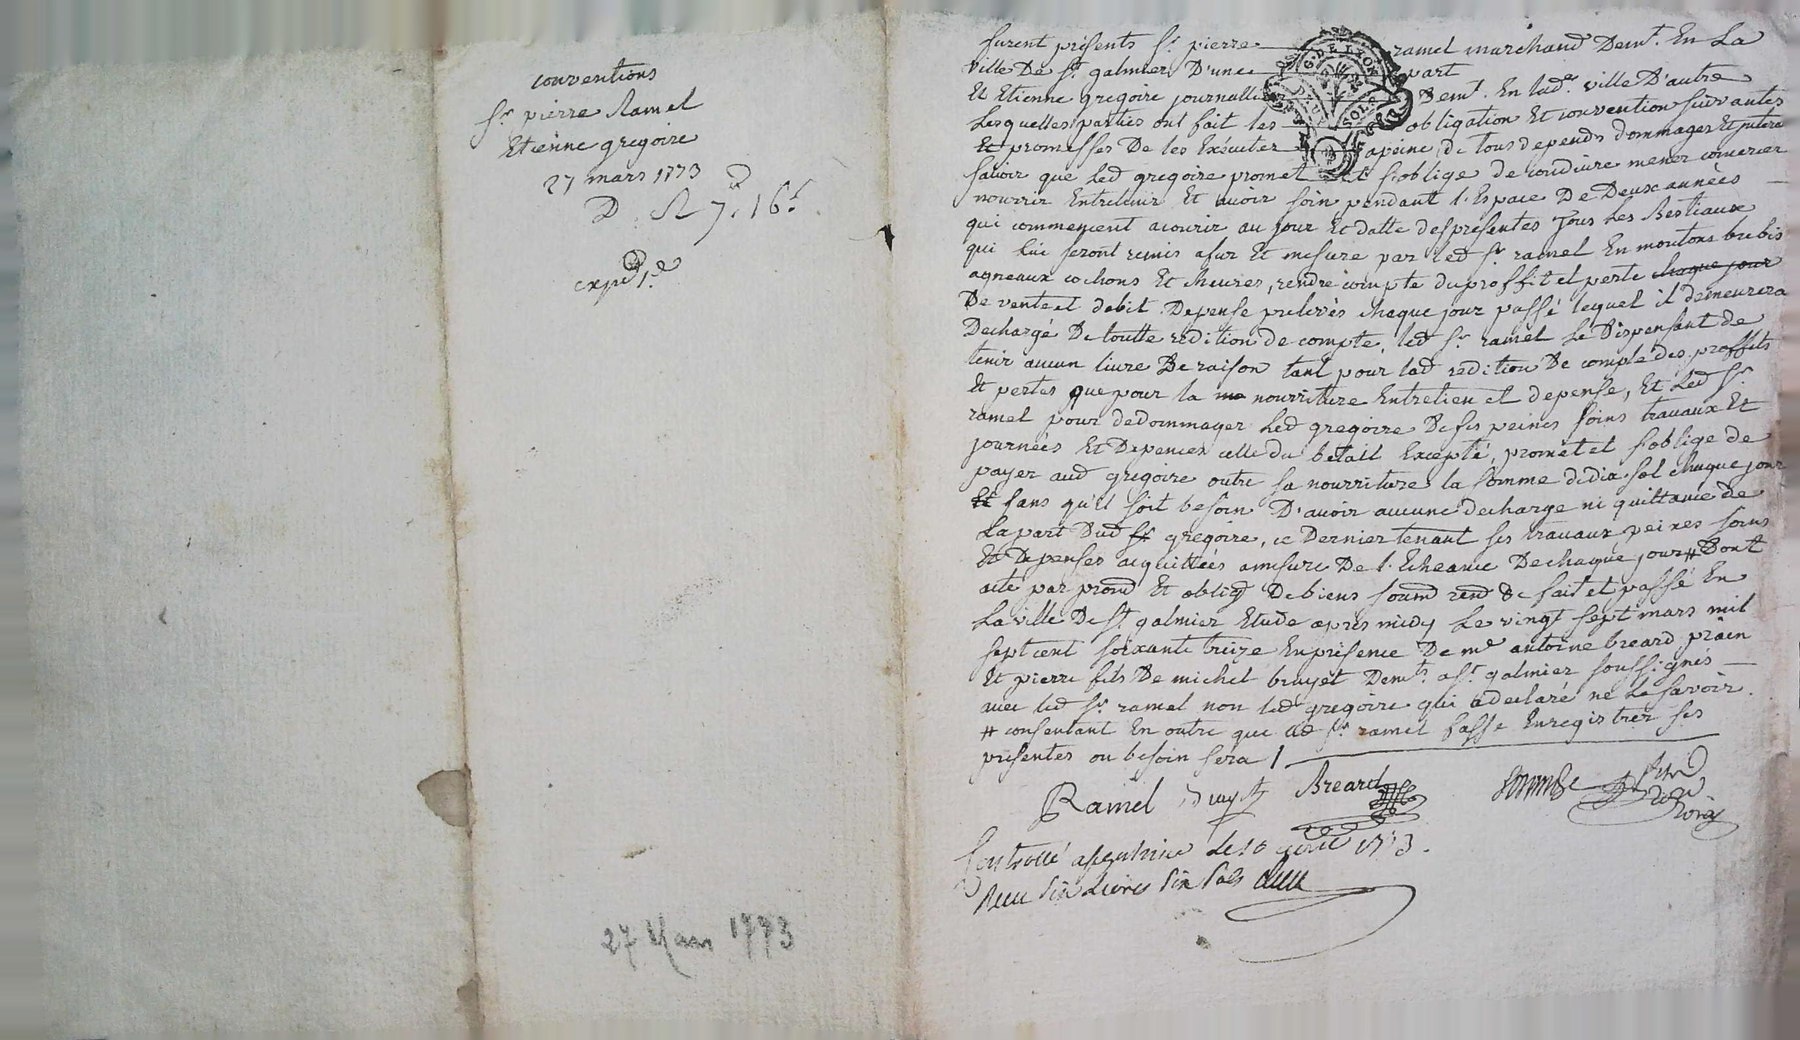 conventions
Sr. pierre Ramel
Etienne gregoire
27 mars 1773
D. R 7. 16s.
expd. 1e.
27 Mars 1773
G. DE LYON
DEUX SOLS
furent présents Sr. pierre ramel marchand Demt. En La
ville De St. galmier D'une part
Et Etienne gregoire journallier Demt. En lade. ville D'autre
Lesquelles parties ont fait les obligation Et convention suivantes
Et promesses De les Exécuter apeine de tous depends dommages Et interets
savoir que led gregoire promet et s'oblige de conduire mener comercer
nourrir Entretenir Et avoir soin pendant l'Espace De Deux années
qui commencent acourir au jour Et datte des présentes Tous Les Bestiaux
qui lui seront remis afur Et mesure par led Sr. ramel En moutons brebis
agneaux cochons Et chevres, rendre compte du proffit et perte chaque jour
De vente et debit Depense prelevés chaque jour passé lequel il demeurera
Dechargé De toutte redition de compte, led Sr. ramel Le Dispensant de
tenir aucun livre De raison tant pour lad redition De compte des proffits
Et pertes que pour la nourriture Entretien et depense, Et Led Sr.
ramel pour dedommager Led gregoire De ses peines soins travaux Et
journées Et Depences celle du betail Excepté, promet et s'oblige de
payer aud gregoire outre sa nourriture la somme de dix sol chaque jour
Et sans qu'il soit besoin D'avoir aucune decharge ni quittance de
La part Dud gregoire, ce Dernier tenant ses travaux peines soins
Et Depenses acquittées amesure De l'Echeance De chaque jour # Dont
acte par promd Et obligd De biens soumd rend &c fait et passé En
La ville De St. galmier Etude après midy Le vingt sept mars mil
sept cent soixante treize En présence De me. antoine breard praen
Et pierre fils De michel bruyet Demts. a St. galmier soussignés
avec led Sr. ramel non led gregoire qui a declaré ne Le savoir.
# consentant En outre que led Sr. ramel fasse Enregistrer ses
présentes ou besoin sera /
Ramel Breard
Controllé a St galmier Le 10 avril 1773.
Recu six Livres six sols